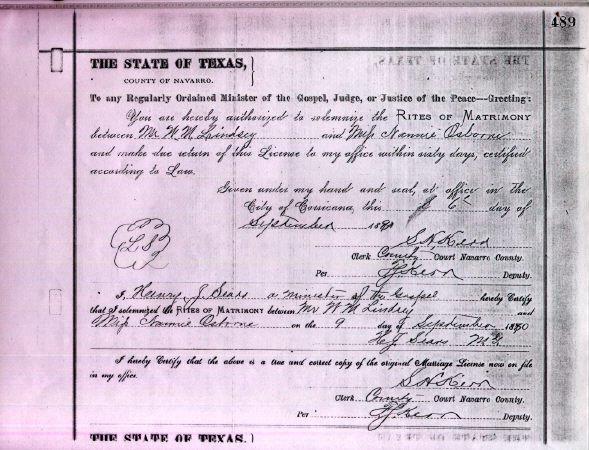 489
THE STATE OF TEXAS,
COUNTY OF NAVARRO.
To any Regularly Ordained Minister of the Gospel, Judge, or Justice of the Peace—Greeting:
You are hereby authorized to solemnize the RITES OF MATRIMONY
between Mr W. M. Lindsey and Miss Nannie Osborne
and make due return of this License to my office within sixty days, certified
according to Law.
Given under my hand and seal, at office in the
City of Corsicana, this 6th day of
September 1880
LS
S. H. Kerr
Clerk County Court Navarro County.
Per Kerr Deputy.
I, Henry J. Sears a minister of the Gospel hereby Certify
that I solemnized the RITES OF MATRIMONY between Mr W M Lindsey and
Miss Nannie Osborne on the 9 day of September 1880
H J Sears M G
I hereby Certify that the above is a true and correct copy of the original Marriage License now on file
in my office.
S. H. Kerr
Clerk County Court Navarro County.
Per Kerr Deputy.
THE STATE OF TEXAS,